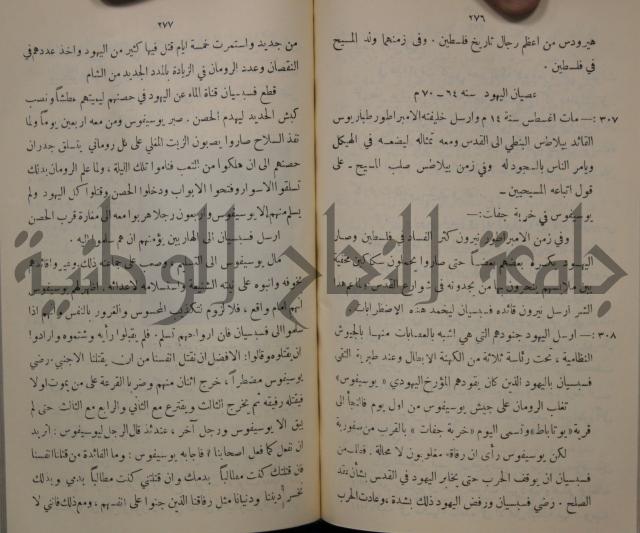 ٢٧٦
هيرودس من اعظم رجال تاريخ فلسطين . وفى زمنهما ولد المسيح
في فلسطين .
عصيان اليهود سنه ٦٤ – ٧٠ م
٣٠٧ :— مات اغسطس سنة ١٤ م وارسل خليفته الامبراطور طيباريوس
القائد بيلاطس البنطي الى القدس ومعه تمثاله ليضعه في الهيكل
ويامر الناس بالسجود له وفي زمن بيلاطس صلب المسيح – على
قول اتباعه المسيحيين –
يوسيفوس في خربة جفات :—
وفي زمن الامبراطور نيرون كثر الفساد في فلسطين وصار
اليهود يكره بعضهم بعضاً حتى صاروا يحملون سكاكين مخفية
بين ملابسهم من يجدونه في شوارع القدس
الشر ارسل نيرون قائده فسبسيان ليخمد هذه الاضطرابات
٣٠٨ :— ارسل اليهود جنودهم التي هي اشبه بالعصابات منها بالجيوش
النظامية ، تحت رئاسة ثلاثة من الكهنة الابطال وعند طبرية التقى
فسبسيان باليهود الذين كان يقودهم المؤرخ اليهودي « يوسيفوس »
تغلب الرومان على جيش يوسيفوس من اول يوم فالتجأ الى
قرية « يوتاباط » وتسمى اليوم « خربة جفات » بالقرب من صفورية
لكن يوسيفوس رأى ان رفاقه مغلوبون لا محالة . فطلب من
فسبسيان ان يوقف الحرب حتى يخابر اليهود في القدس بشأن عقد
الصلح . رضي فسبسيان ورفض اليهود ذلك بشدة ، وعادت الحرب
٢٧٧
من جديد واستمرت خمسة ايام قتل فيها كثير من اليهود واخذ عددهم في
النقصان وعدد الرومان في الزيادة بالمدد الجديد من الشام
قطع فسبسيان قناة الماء عن اليهود في حصنهم ليميتهم عطشاً ونصب
كبش الحديد ليهدم الحصن . صبر يوسيفوس ومن معه اربعين يوماً ولما
نفذ السلاح صاروا يصبون الزيت المغلي على كل روماني يتسلق جدران
حصنهم الى ان هلكوا من التعب فناموا تلك الليلة ، ولما علم الرومان بذلك
تسلقوا الاسوار وفتحوا الابواب ودخلوا الحصن وقتلوا كل اليهود ولم
يسلم منهم الا يوسيفوس واربعون رجلا هربوا معه الى مغارة قرب الحصن
ارسل فسبسيان الى الهاربين يؤمنهم ان هم سلموا اليه .
مال يوسيفوس الى التسليم وصعب على جماعته ذلك
لهم امام واقع ، فلا لزوم لتكذيب المحسوس والغرور بالنفس
الى فسبسيان فان ارواحهم تسلم . فلم يقبلوا رأيه وشتموه وارادوا
ان يقتلوه وقالوا : الافضل ان نقتل انفسنا من ان يقتلنا الاجنبي . رضي
يوسيفوس مضطراً ، خرج اثنان منهم وضربا القرعة على من يموت اولا
فيقتله رفيقه ثم يخرج الثالث ويقترع مع الثاني والرابع مع الثالث حتى لم
يبق الا يوسيفوس ورجل آخر ، عندئذ قال الرجل ليوسيفوس : اتريد
ان نفعل كما فعل اصحابنا ؟ فاجابه يوسيفوس : وما الفائدة من قتلنا انفسنا
فان قتلتك كنت مطالباً بدمك وان قتلتني كنت مطالباً بدمي وبذلك
نخسر ديننا ودنيانا مثل رفاقنا الذين جنوا على انفسهم ، ومع ذلك فاني لا
جامعة النجاح الوطنية